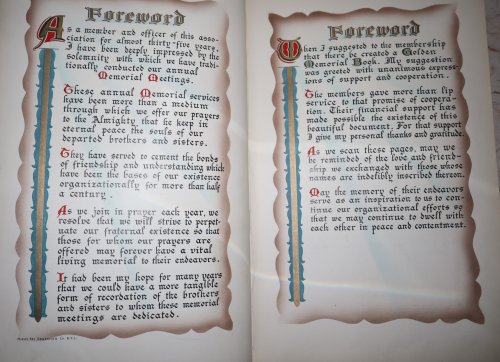 Foreword
As a member and officer of this asso-
ciation for almost thirty-five years,
I have been deeply impressed by the
solemnity with which we have tradi-
tionally conducted our annual
Memorial Meetings.
These annual Memorial services
have been more than a medium
through which we offer our prayers
to the Almighty that he keep in
eternal peace the souls of our
departed brothers and sisters.
They have served to cement the bonds
of friendship and understanding which
have been the bases of our existence
organizationally for more than half
a century.
As we join in prayer each year, we
resolve that we will strive to perpet-
uate our fraternal existence so that
those for whom our prayers are
offered may forever have a vital
living memorial to their endeavors.
It had been my hope for many years
that we could have a more tangible
form of recordation of the brothers
and sisters to whom these memorial
meetings are dedicated.
Foreword
When I suggested to the membership
that there be created a Golden
Memorial Book, My suggestion
was greeted with unanimous express-
ions of support and cooperation.
The members gave more than lip
service to that promise of coopera-
tion. Their financial support has
made possible the existence of this
beautiful document. For that support
I give my personal thanks and gratitude.
As we scan these pages, may we
be reminded of the love and friend-
ship we exchanged with those whose
names are indelibly inscribed thereon.
May the memory of their endeavors
serve as an inspiration to us to con-
tinue our organizational efforts so
that we may continue to dwell with
each other in peace and contentment.